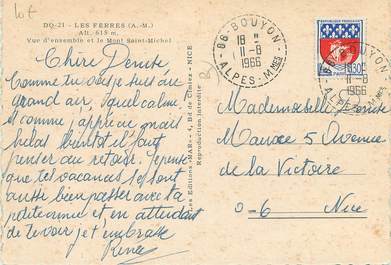 lot
DQ-21 - LES FERRES (A.-M.)
Alt. 615 m.
Vue d'ensemble et le Mont Saint-Michel
Chère Denise
Comme tu vois je suis au
grand air, quel calme,
et comme j'apprécie mais
hélas bientôt il faut
penser au retour. Je pense
que tes vacances se sont
aussi bien passer avec ta
petite mère et en attendant
de te voir je t'embrasse
Renée
Les Editions "MAR" - 4, Bd de Cimiez - NICE
Reproduction interdite
06 BOUYON
18 H
11-8
1966
ALPES-MMES
REPUBLIQUE FRANCAISE
0,30F
06 BOUYON
18 H
11-8
1966
ALPES-MMES
Mademoiselle Denise
5 Avenue
de la Victoire
0-6 Nice